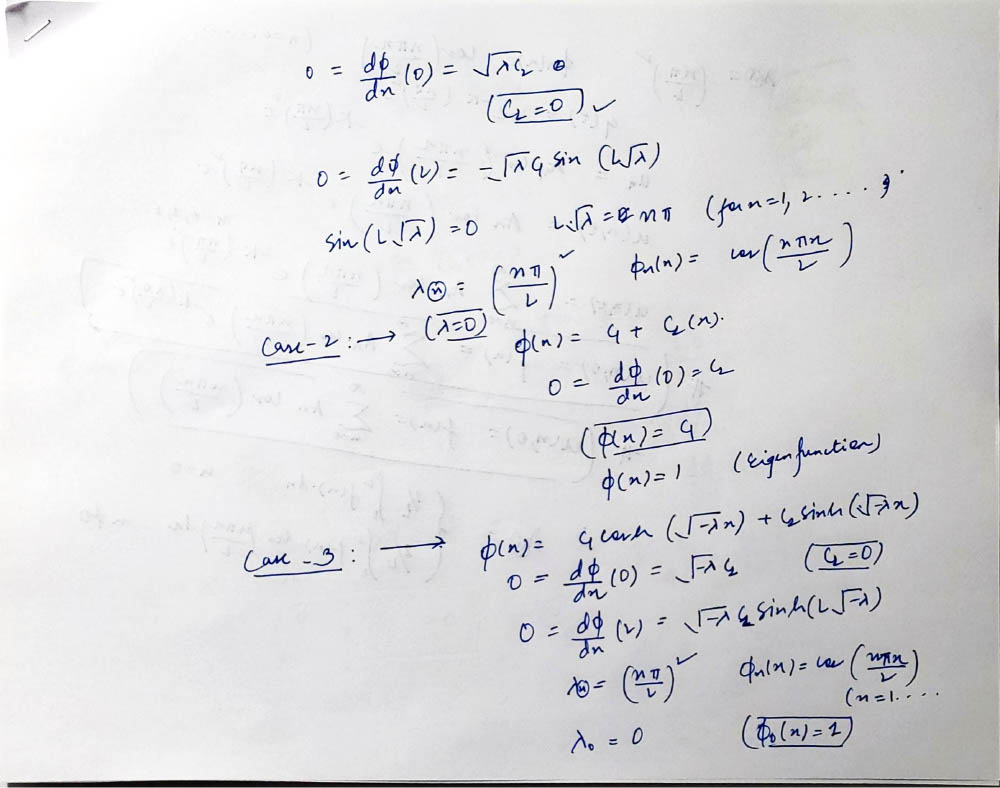 0 = dφ/dx (0) = √λ C₂
(C₂ = 0) ✓
0 = dφ/dx (L) = -√λ C₁ sin (L√λ)
sin (L√λ) = 0    L√λ = nπ (for n=1, 2.....
λn = (nπ/L)²    φn(x) = cos (nπx/L)
Case-2 : → (λ=0)    φ(x) = C₁ + C₂(x).
0 = dφ/dx (0) = C₂
(φ(x) = C₁)
φ(x) = 1    (eigenfunction)
Case-3 : →    φ(x) = C₁ cosh (√-λ x) + C₂ sinh (√-λ x)
0 = dφ/dx (0) = √-λ C₂    (C₂ = 0)
0 = dφ/dx (L) = √-λ C₂ sinh (L√-λ)
λn = (nπ/L)²    φn(x) = cos (nπx/L)
(n=1....
λ₀ = 0    (φ₀(x) = 1)